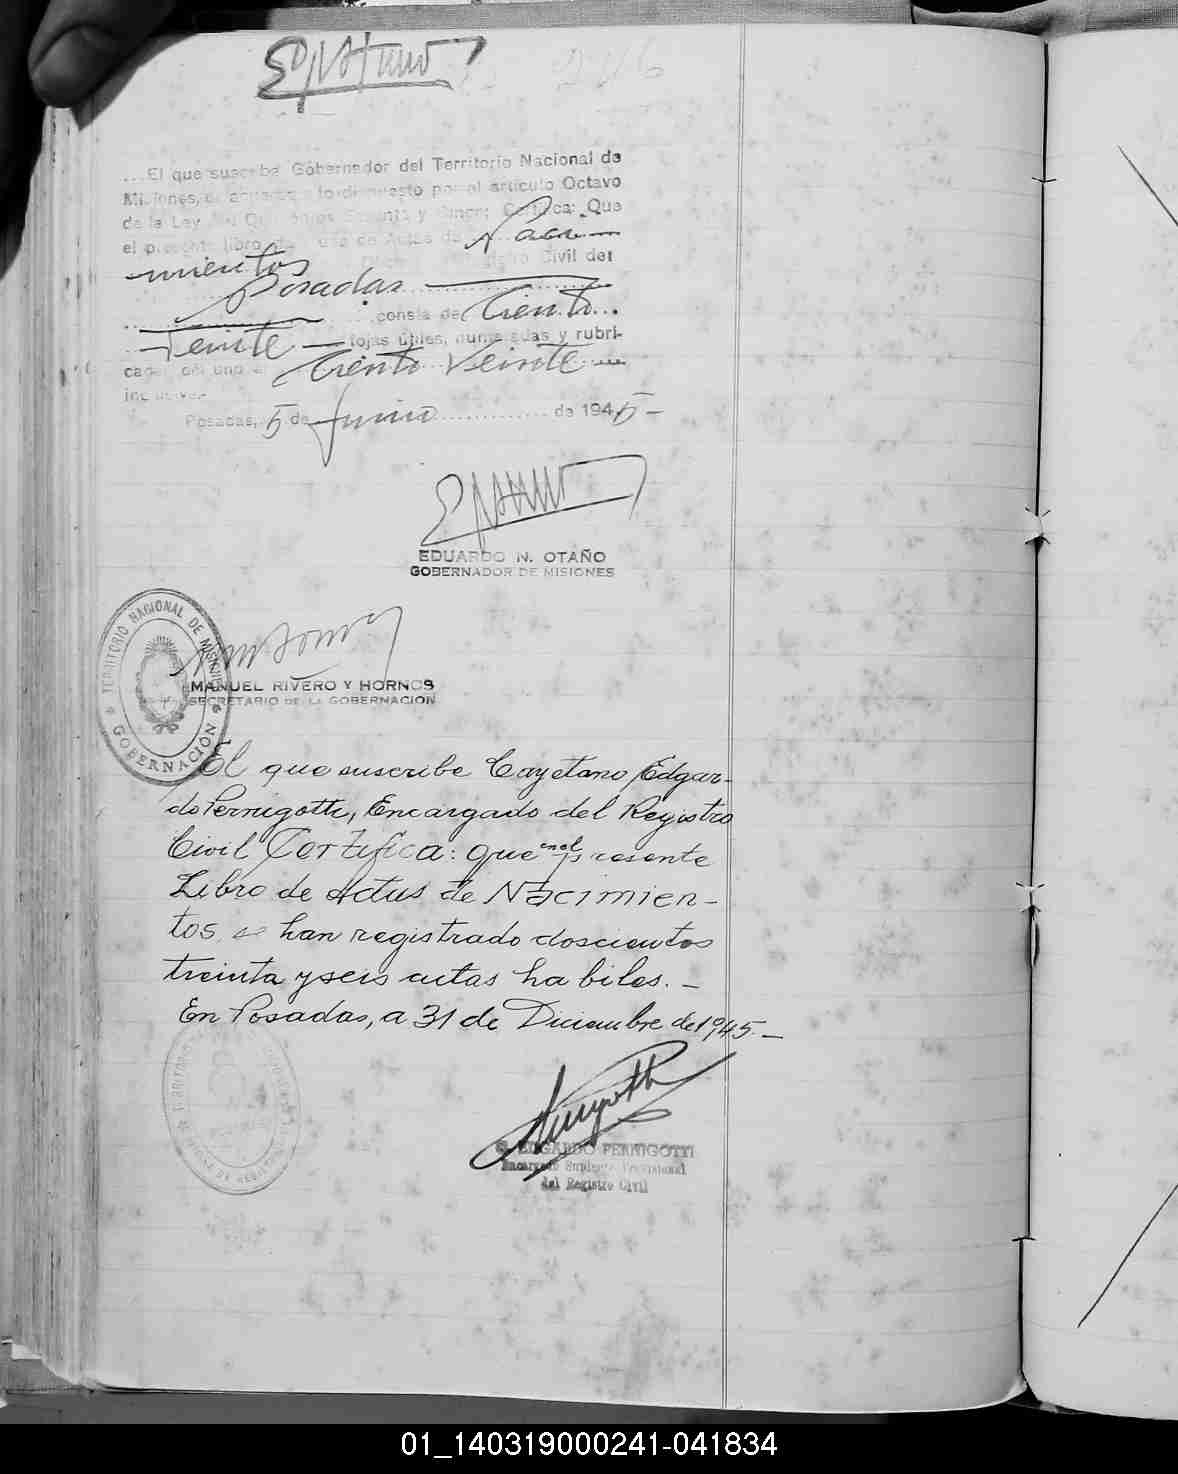 ...El que suscribe Gobernador del Territorio Nacional de
Misiones, de acuerdo a lo dispuesto por el artículo Octavo
de la Ley y Certifica: Que
el presente libro de Actas de Naci-
mientos Civil del
Posadas
consta de Ciento
Veinte fojas útiles, numeradas y rubri-
cadas del uno a Ciento Veinte
inclusive.
Posadas, 5 de Junio de 1945-
EDUARDO N. OTAÑO
GOBERNADOR DE MISIONES
TERRITORIO NACIONAL DE MISIONES
GOBERNACIÓN
MANUEL RIVERO Y HORNOS
SECRETARIO DE LA GOBERNACIÓN
El que suscribe Cayetano Edgar-
do Pernigotti, Encargado del Registro
Civil Certifica: que en el presente
Libro de Actas de Nacimien-
tos se han registrado doscientos
treinta y seis actas habiles.-
En Posadas, a 31 de Diciembre de 1945.-
C. EDGARDO PERNIGOTTI
Encargado Suplente Provisional
del Registro Civil
01_140319000241-041834